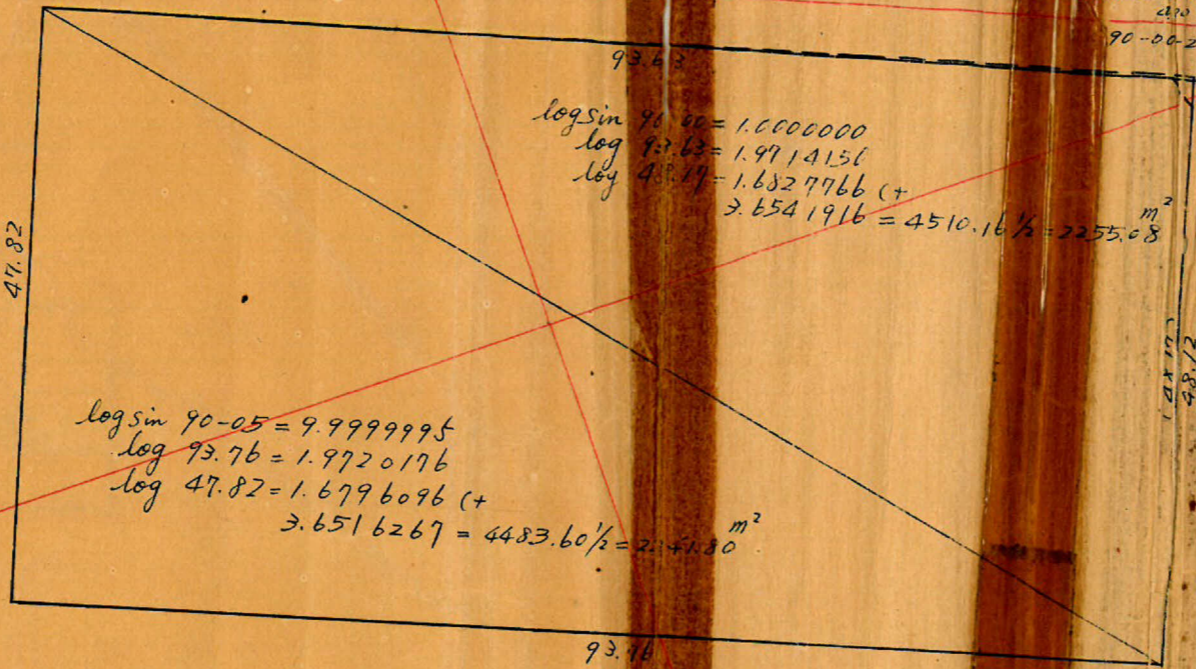 90-00-2
93.63
log sin 90-00 = 1.0000000
log 93.63 = 1.9714150
log 48.17 = 1.6827766 (+
3.6541916 = 4510.16 1/2 = 2255.08 m²
47.82
48.12
log sin 90-05 = 9.9999995
log 93.76 = 1.9720176
log 47.82 = 1.6796096 (+
3.6516267 = 4483.60 1/2 = 2241.80 m²
93.76